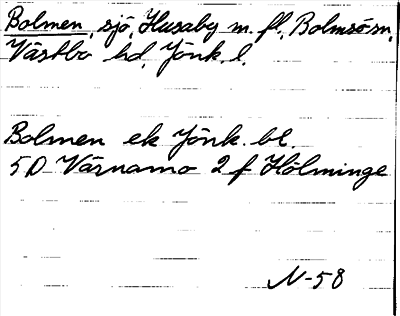 Bolmen, sjö, Husaby m. fl., Bolmsö sn,
Västbo hd, Jönk. l.
Bolmen ek Jönk. bl.
5D Värnamo 2f Hölminge
N-58